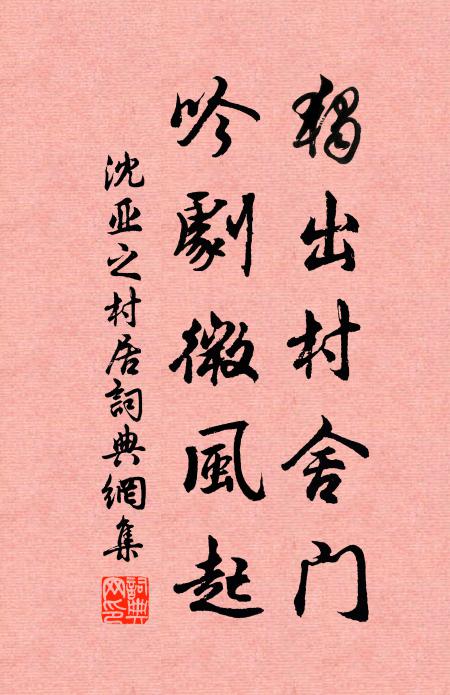 獨出村舍門
吟劇微風起
沈亚之村居詞典網集
詞典網印